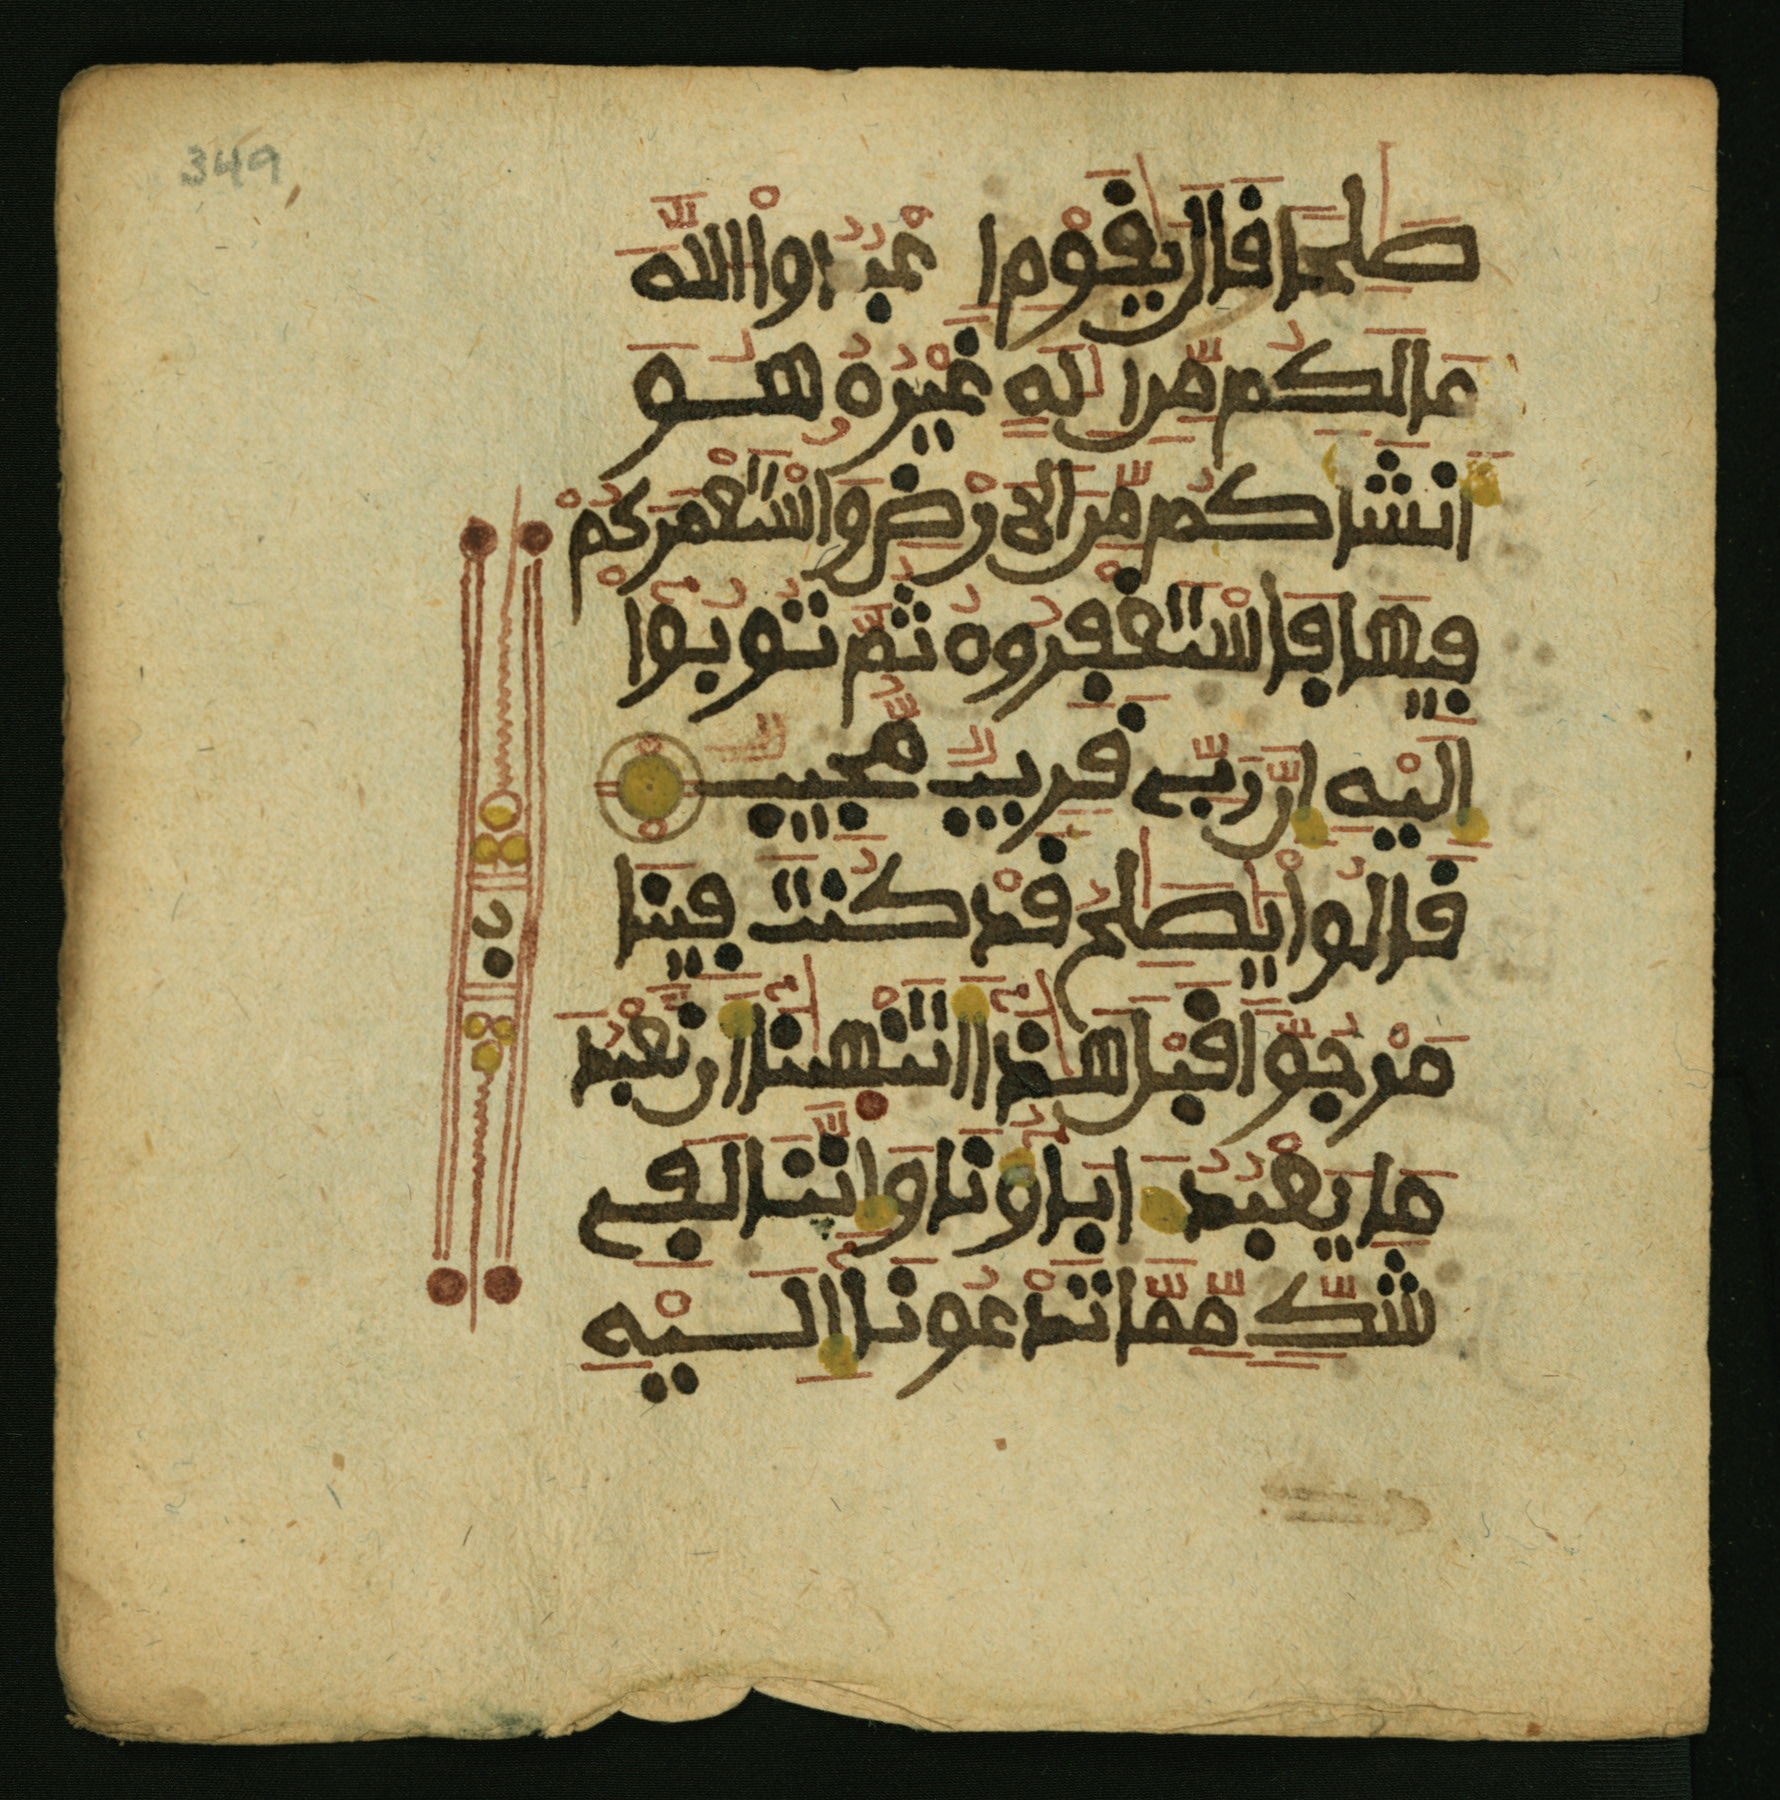 349
صَٰلِحاً قَالَ يَٰقَوْمِ اُ عْبُدُواْ اُللَّهَ
مَا لَكُم مِّنِ اِلَٰهٍ غَيْرُهُۥ هُوَ
أَنشَأَكُم مِّنَ اَلَارْضِ وَاسْتَعْمَرَكُمْ
فِيهَا فَاسْتَغْفِرُوهُ ثُمَّ تُوبُوٓاْ
إِلَيْهِ إِنَّ رَبِّے قَرِيبٌ مُّجِيبٌ
قَالُواْ يَٰصَٰلِحُ قَدْ كُنتَ فِينَا
مَرْجُوّاً قَبْلَ هَٰذَآ أَتَنْهَىٰنَآ أَن نَّعْبُدَ
مَا يَعْبُدُ ءَابَآؤُنَا وَإِنَّنَا لَفِے
شَكٍّ مِّمَّا تَدْعُونَآ إِلَيْهِ